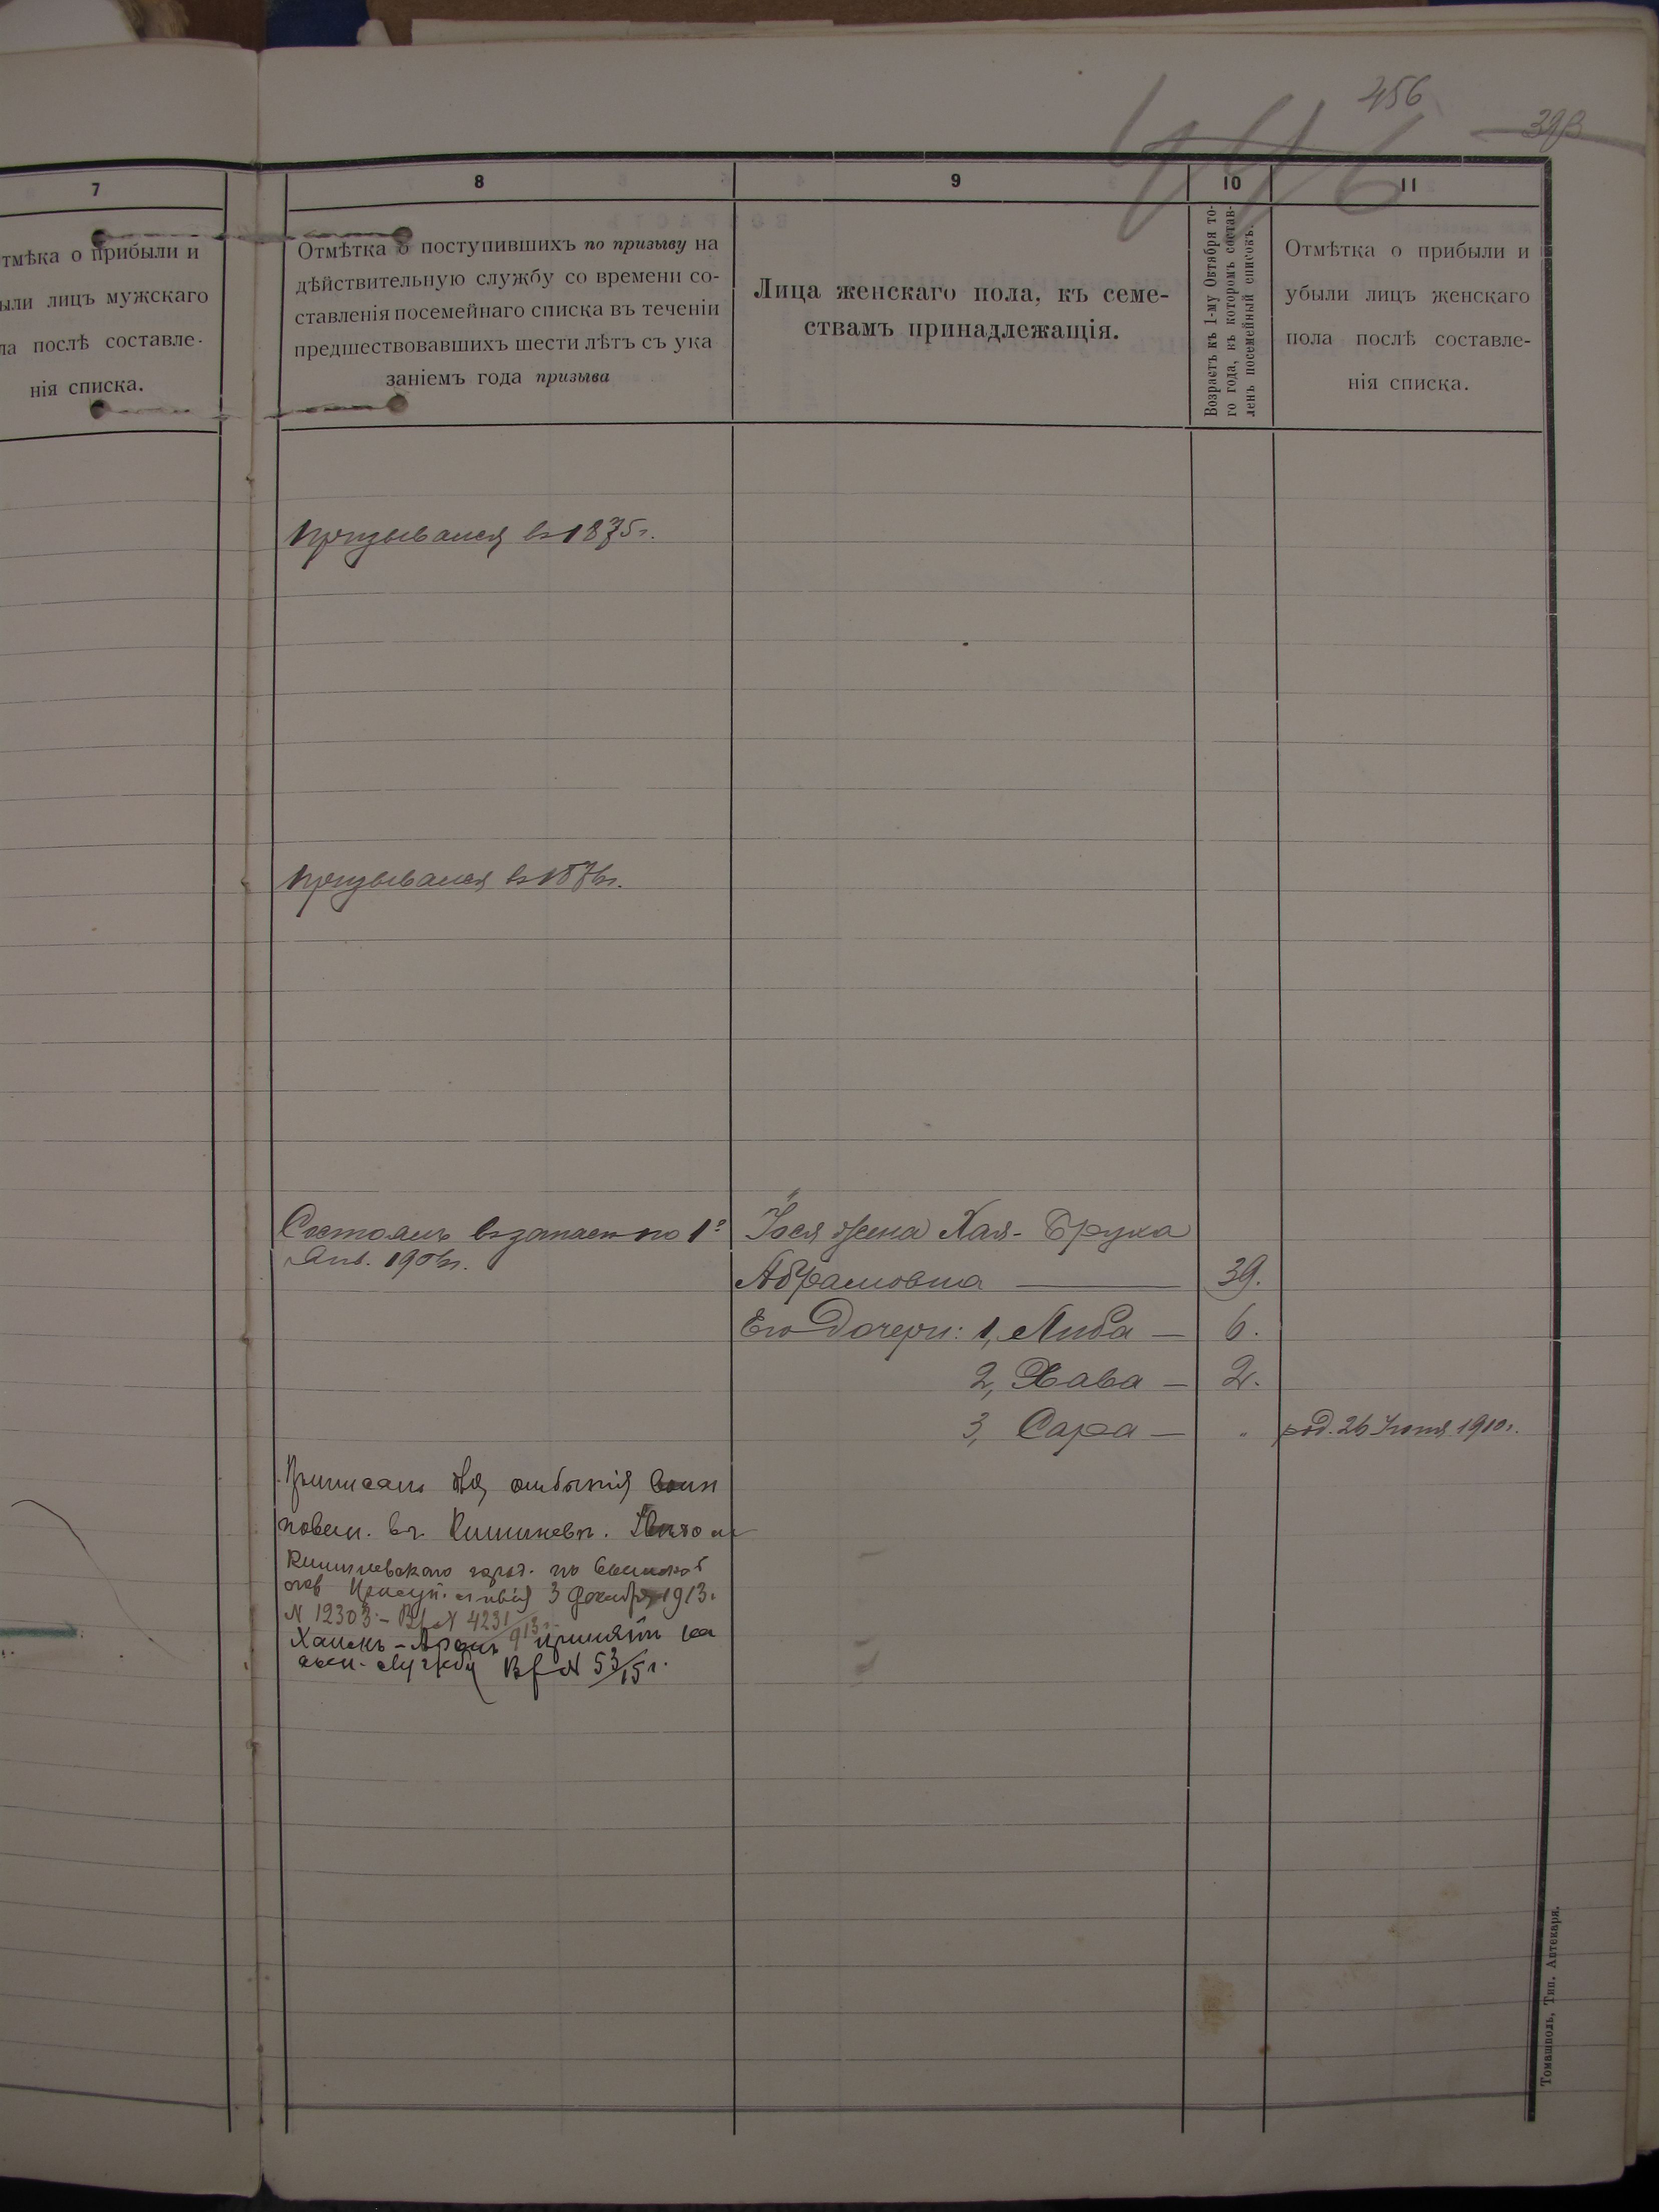 456
446
398
7
8
9
10
11
тмѣка о прибыли и
ыли лицъ мужскаго
ла послѣ составле-
нія списка.
Отмѣтка о поступившихъ по призыву на
дѣйствительную службу со времени со-
ставленія посемейнаго списка въ теченіи
предшествовавшихъ шести лѣтъ съ ука
заніемъ года призыва
Лица женскаго пола, къ семе-
ствамъ принадлежащія.
Возрастъ къ 1-му Октября то-
го года, къ которомъ состав-
ленъ посемейный списокъ.
Отмѣтка о прибыли и
убыли лицъ женскаго
пола послѣ составле-
нія списка.
Призывался въ 1875 г.
Призывался въ 1876 г.
Состоялъ въ запасѣ по 1е
Янв. 190 г.
Іося жена Хая-Брука
Абрамовна — 39.
Его дочери: 1, Либа — 6.
2, Хава — 2.
3, Сара — " род. 26 Іюня 1910 г.
Приписанъ для отбытія воин
повин. въ Кишиневѣ.
Кишиневскаго город. по воинской
пов Присут.ствія 3 Декабря 1913.
N 12303 – Вх N 4231/913 г.
Хаимъ-Аронъ принятъ на
воен. службу Вх N 53/15 г.
Томашполь, Тип. Аптекаря.